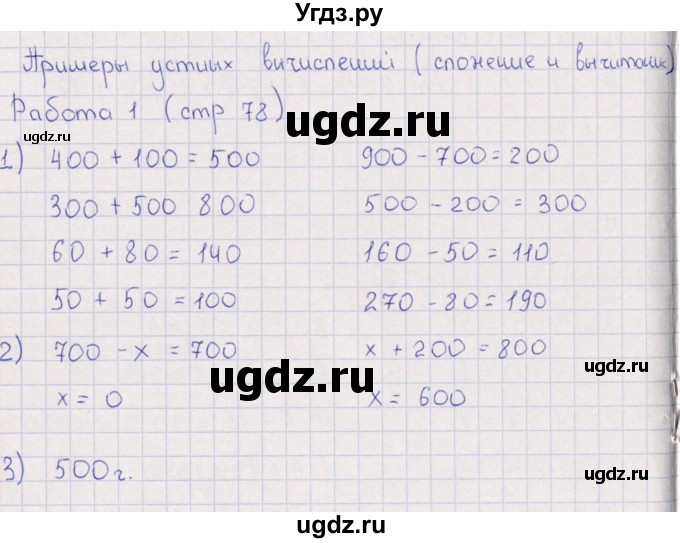 Угдз.ру
Примеры устных вычислений (сложение и вычитание)
Работа 1 (стр 78)
ugdz.ru
ugdz.ru
ugdz.ru
1) 400 + 100 = 500 900 - 700 = 200
300 + 500 800 500 - 200 = 300
60 + 80 = 140 160 - 50 = 110
50 + 50 = 100 270 - 80 = 190
ugdz.ru
2) 700 - x = 700 x + 200 = 800
ugdz.ru
x = 0 x = 600
3) 500 г.
ugdz.ru
ugdz.ru